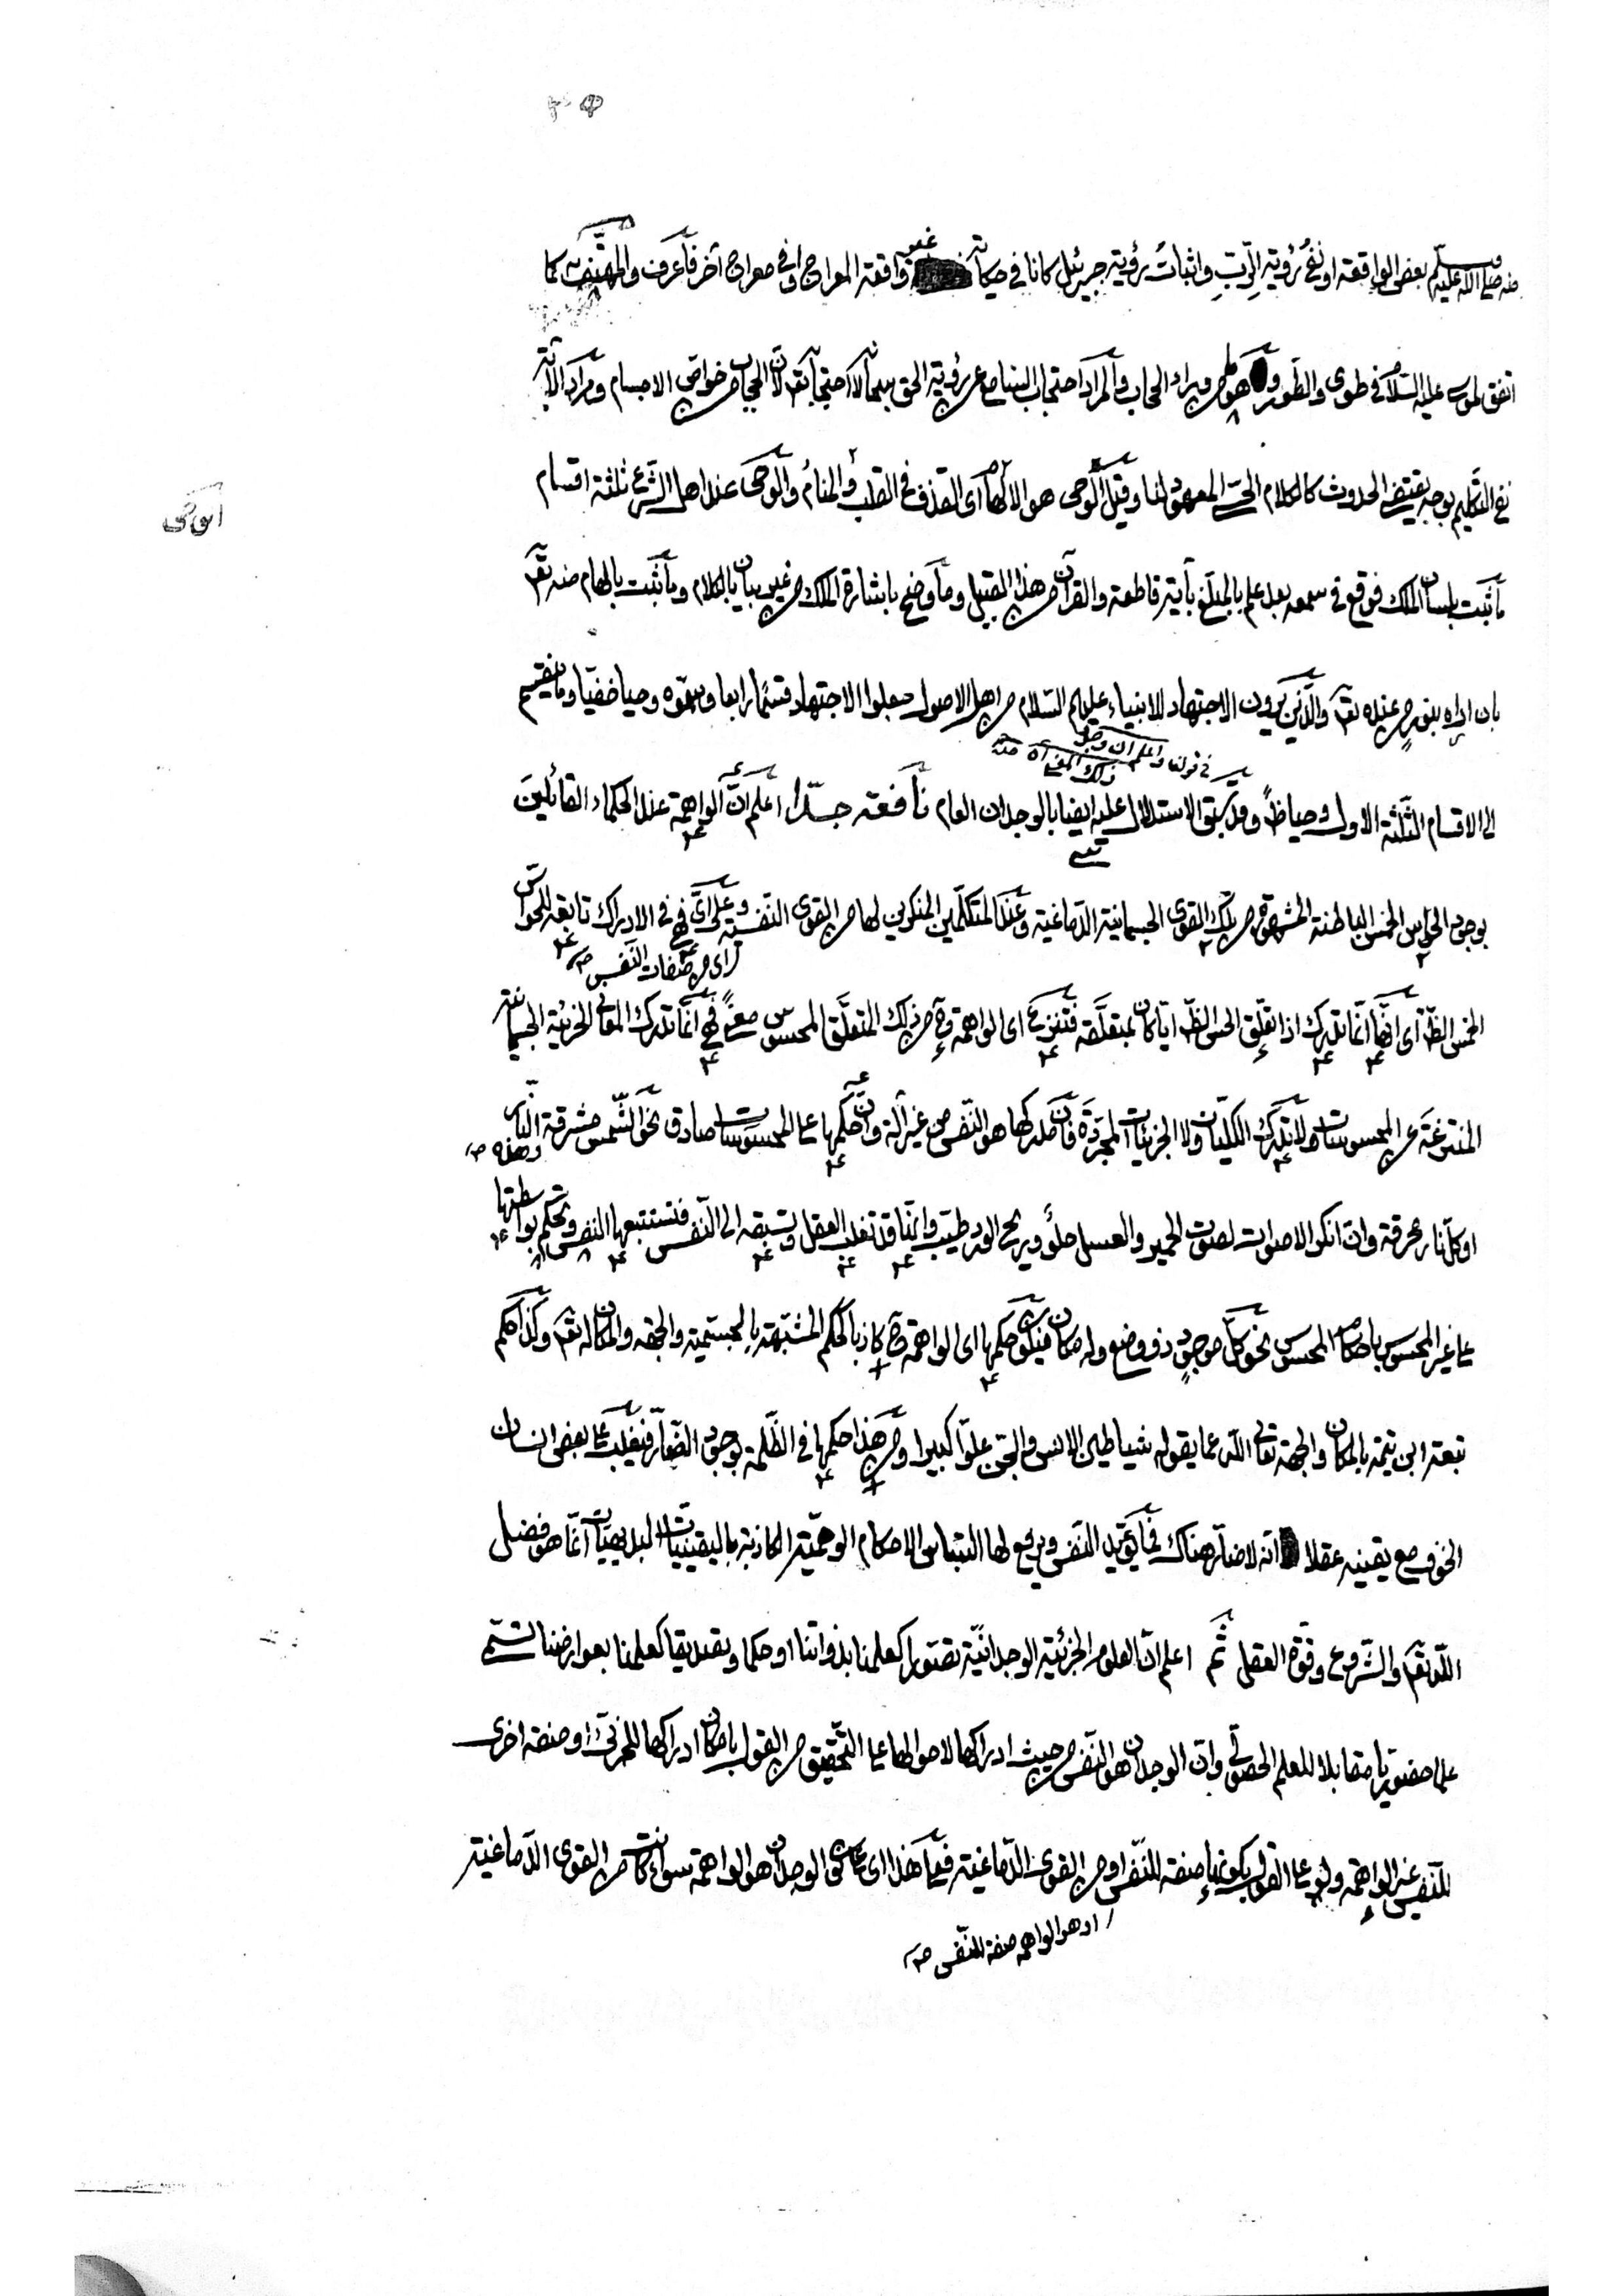 منه صلى الله عليه وسلم بعض الواقعة او نفى رؤية الرب واثبات رؤية جبرئيل كانا في حكاية غير واقعة المعراج او في معراج آخر فاعرف والهتف كما
اتفق لموسى عليه السلام في طوى والطور وهو من وراء الحجاب والمراد احتجاب السامع عن رؤية الحق لا احتجابه تعالى لان الحجاب من خواص الاجسام ومراد الآية
نفى التكليم بوجه يقتضى الحدوث كالكلام الحسى المعهود لنا وقيل الوحى هو الالهام اى القذف في القلب او المنام والوحى عند اهل الشرع ثلثة اقسام
الوحى
ما ثبت بلسان الملك فوقع في سمعه بعد علمه بالمبلغ بآية قاطعة والقرآن من هذا القبيل وما وضح باشارة الملك من غير بيان بالكلام وما ثبت بالهام منه تعالى
بان اراه بنور من عنده تعالى والذين يرون الاجتهاد للانبياء عليهم السلام من اهل الاصول جعلوا الاجتهاد قسما رابعا وسموه وحيا خفيا وما ينقسم
في قولنا واعلم ان وجدان ذلك المعنى اه منه
الى الاقسام الثلثة الاول وحيا ظاهرا وقد سبق الاستدلال عليه ايضا بالوجدان العام نافعة جدا اعلم ان الواهمة عند الحكماء القائلين
بوجود الحواس الخمس الباطنة المشهورة من تلك القوى الجسمانية الدماغية وعند المتكلمين المنكرين لها من القوى النفسية وعلى اى فهى في الادراك تابعة للحواس
اى من صفات النفس صح
الخمس الظاهرة اى انها انما تدرك اذا تعلق الحس الظاهر ايا كان بمتعلقه فتنزع اى الواهمة من ذلك المتعلق المحسوس معنى فهى انما تدرك المعانى الجزئية الجسمانية
المنتزعة عن المحسوسات ولا تدرك الكليات ولا الجزئيات المجردة فان مدركها هو النفس من غير آلة وان حكمها على المحسوسات صادق نحو الشمس مشرقة وهذه النار
او كل نار محرقة وان انكر الاصوات لصوت الحمير والعسل حلو وريح الورد طيب وانها قد تغلب العقل وتسبقه الى النفس فتستتبعها النفس وتحكم بواسطتها
على غير المحسوس باحكام المحسوس نحو كل موجود ذو وضع وله مكان فيكون حكمها اى الواهمة كاذبا كحكم المشبهة بالجسمية والجهة والمكان له تعالى وكذا حكم
تبعة ابن تيمية بالمكان والجهة تعالى الله عما يقوله شياطين الانس والجن علوا كبيرا ومن هذا حكمها في الظلمة بوجود الضار فيغلب على بعض انسان
الخوف مع يقينه عقلا انه لا ضار هناك فما يؤيد النفس ويرفع لها التباس الاحكام الوهمية الكاذبة باليقينيات البديهيات انما هو فضل
الله تعالى والشروع وقوة العقل ثم اعلم ان العلوم الجزئية الوجدانية تصورا كعلمنا بذواتنا او حكما وتصديقا كعلمنا بعوارضنا تسمى
علما حضوريا مقابلا للعلم الحصولى وان الوجدان هو النفس من حيث ادراكها لاحوالها على التحقيق من القول بامكان ادراكها للجزئى او صفة اخرى
للنفس غير الواهمة ولو على القول بكونها صفة للنفس او من القوى الدماغية فعلى هذا اى على كون الوجدان هو الواهمة سواء كانت من القوى الدماغية
او هو الواهمة صفة للنفس صح